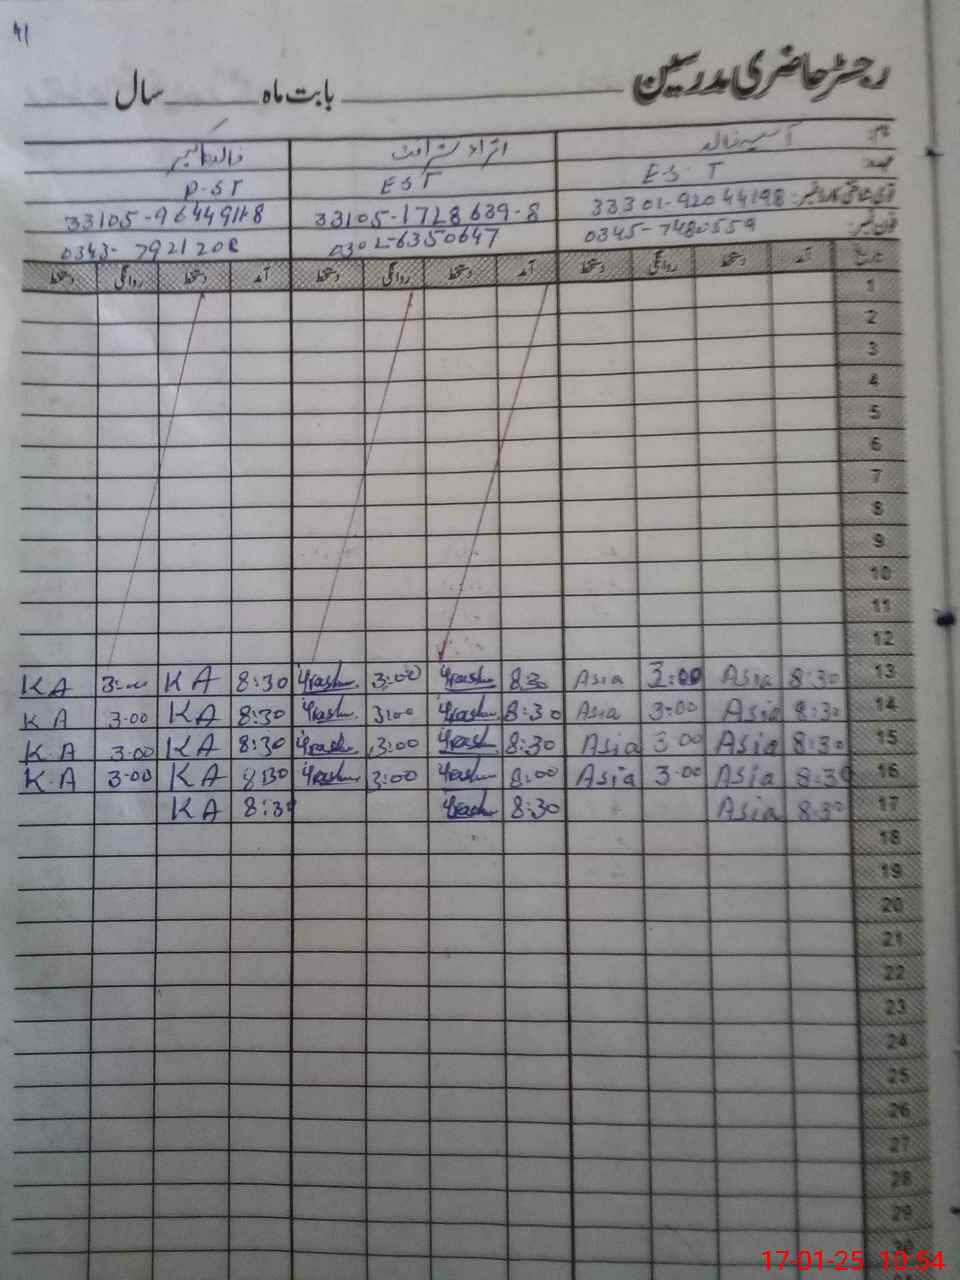 41
رجسٹر حاضری مدرسین ــــــــ بابت ماہ ــــــــ سال ــــــــ
نام: آسیہ خالد شرافت خالد
عہدہ: E S T E S T P.S T
قومی شناختی کارڈ نمبر: 33301-92044198 33105-1728639-8 33105-9644911-8
فون نمبر: 0345-7480559 0302-6350647 0343-
تاریخ آمد دستخط روانگی دستخط آمد دستخط روانگی دستخط آمد دستخط روانگی دستخط
1
2
3
4
5
6
7
8
9
10
11
12
KA 3:00 KA 8:30 3:00 8:30 Asia 3:00 Asia 8:30 13
KA 3:00 KA 8:30 3:00 8:30 Asia 3:00 Asia 8:30 14
K.A 3:00 KA 8:30 3:00 8:30 Asia 3 00 Asia 8:30 15
K.A 3:00 KA 8:30 3:00 8:00 Asia 3.00 Asia 8:30 16
KA 8:30 8:30 Asia 8:30 17
18
19
20
21
22
23
24
25
26
27
28
29
30
17-01-25 10:54